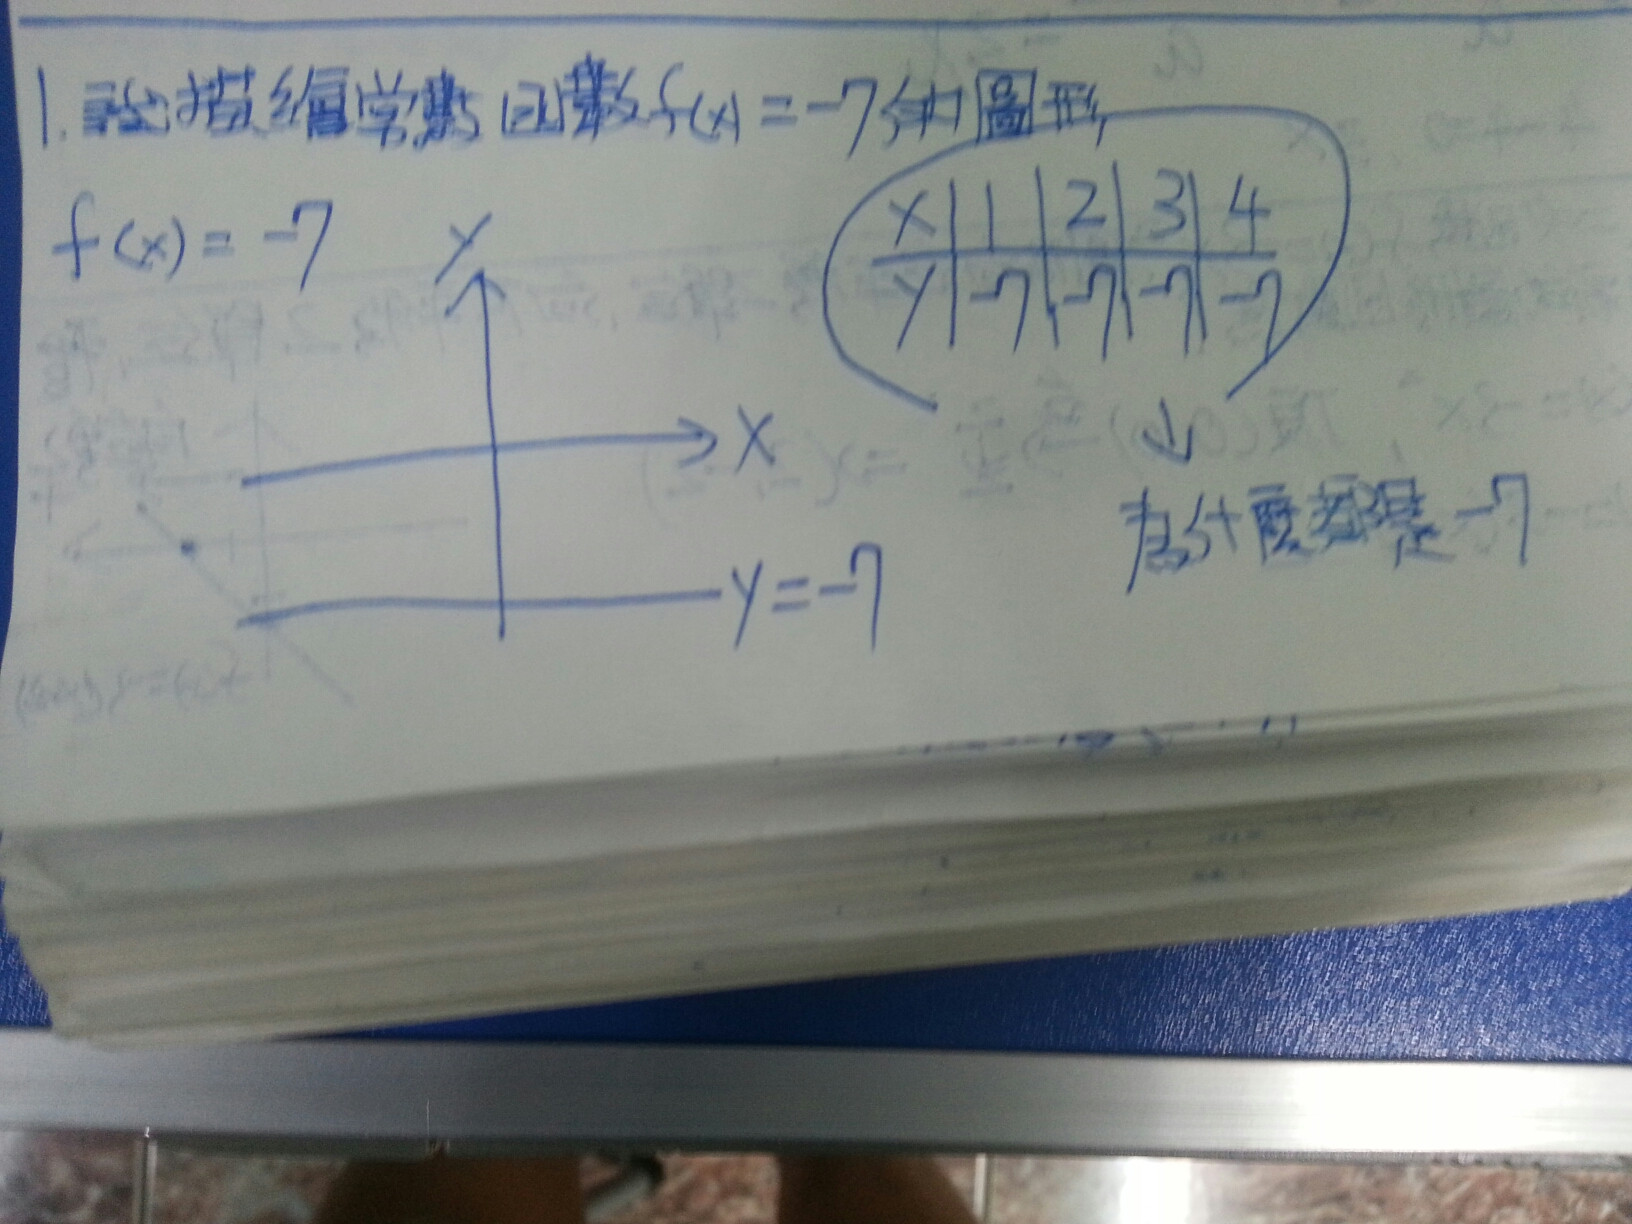 1. 試描繪常數函數f(x)=-7的圖形,
f(x)=-7
x 1 2 3 4
y -7 -7 -7 -7
y
x
y=-7
↓
為什麼都是-7